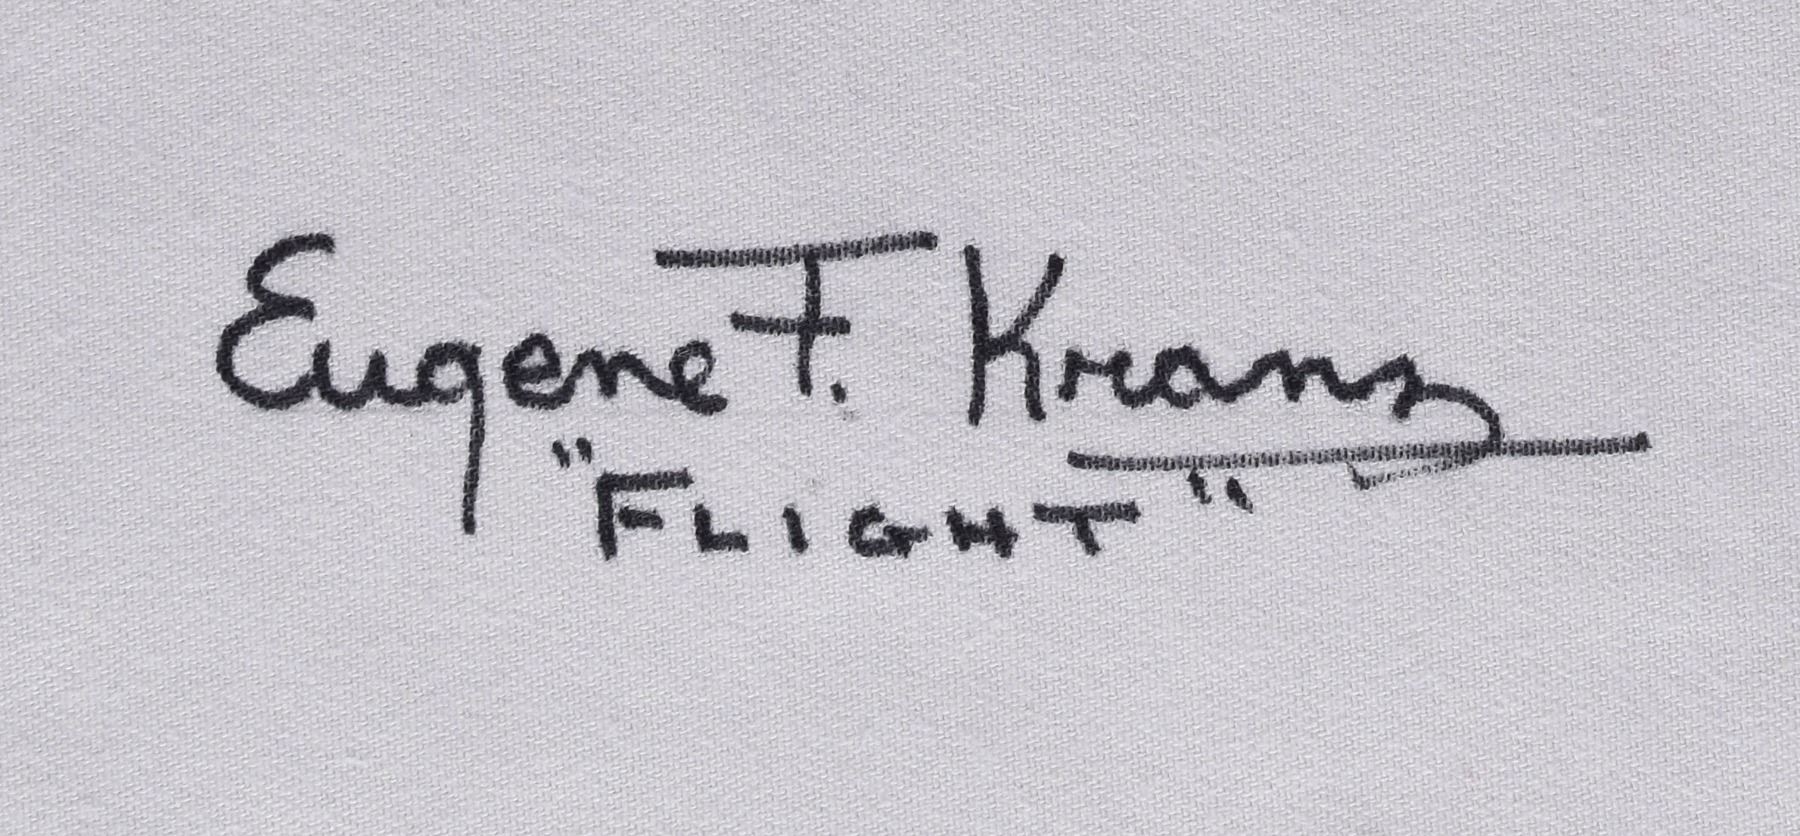 Eugene F. Kranz
"FLIGHT"